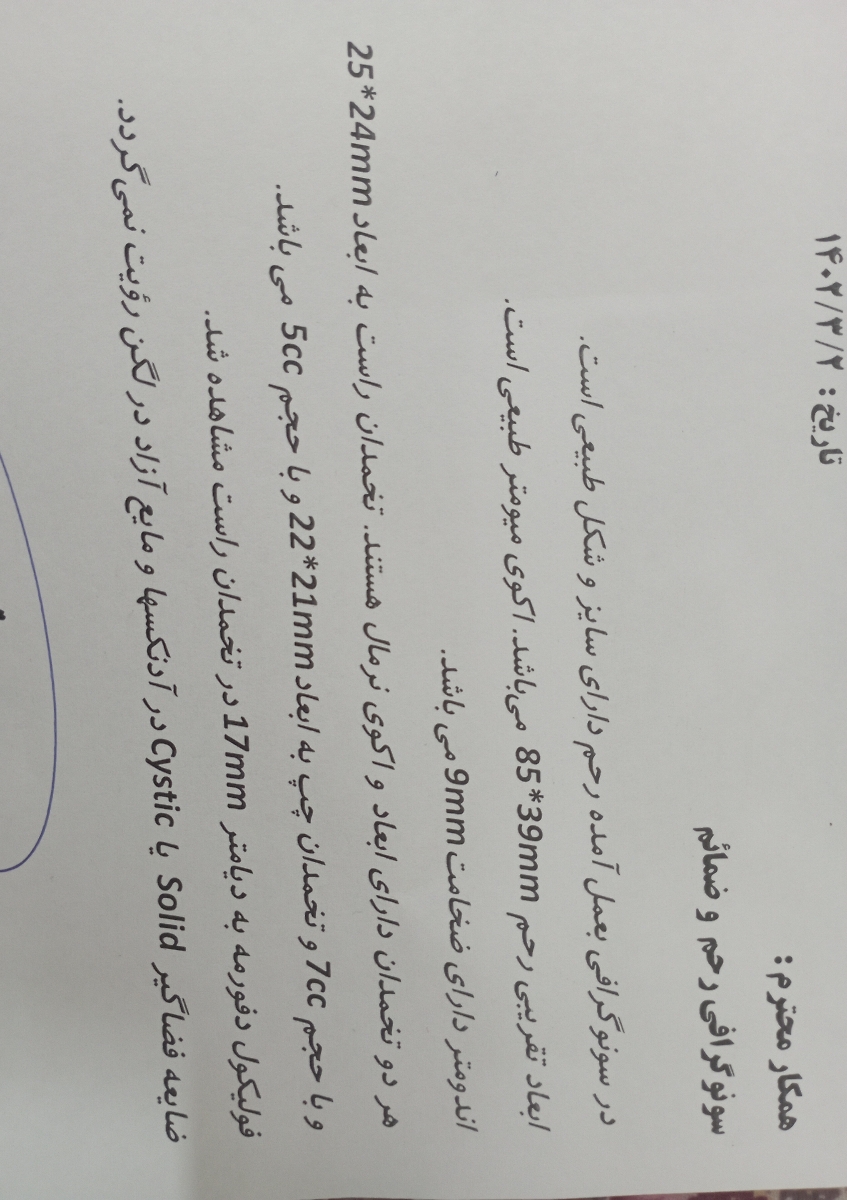 تاریخ: ۱۴۰۲/۳/۲
همکار محترم:
سونوگرافی رحم و ضمائم
در سونوگرافی بعمل آمده رحم دارای سایز و شکل طبیعی است.
ابعاد تقریبی رحم 85*39mm می‌باشد. اکوی میومتر طبیعی است.
اندومتر دارای ضخامت 9mm می باشد.
هر دو تخمدان دارای ابعاد و اکوی نرمال هستند. تخمدان راست به ابعاد 25*24mm
و با حجم 7cc و تخمدان چپ به ابعاد 22*21mm و با حجم 5cc می باشد.
فولیکول دفورمه به دیامتر 17mm در تخمدان راست مشاهده شد.
ضایعه فضاگیر Solid یا Cystic در آدنکسها و مایع آزاد در لگن رؤیت نمی‌گردد.